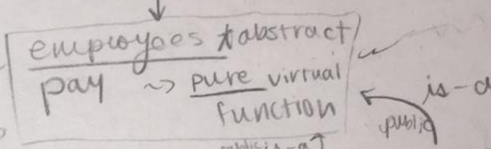 employees *abstract
pay ~> pure virtual
function
is-a
public